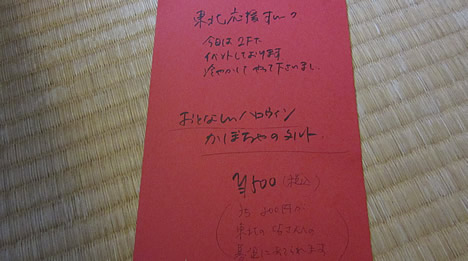 東北応援すい〜つ
今日は2Fで
イベントしております
冷やかしてやって下さいまし。
おとなしいハロウィン
かぼちゃのタルト。
¥500(税込)
内 200円が
東北の皆さんの